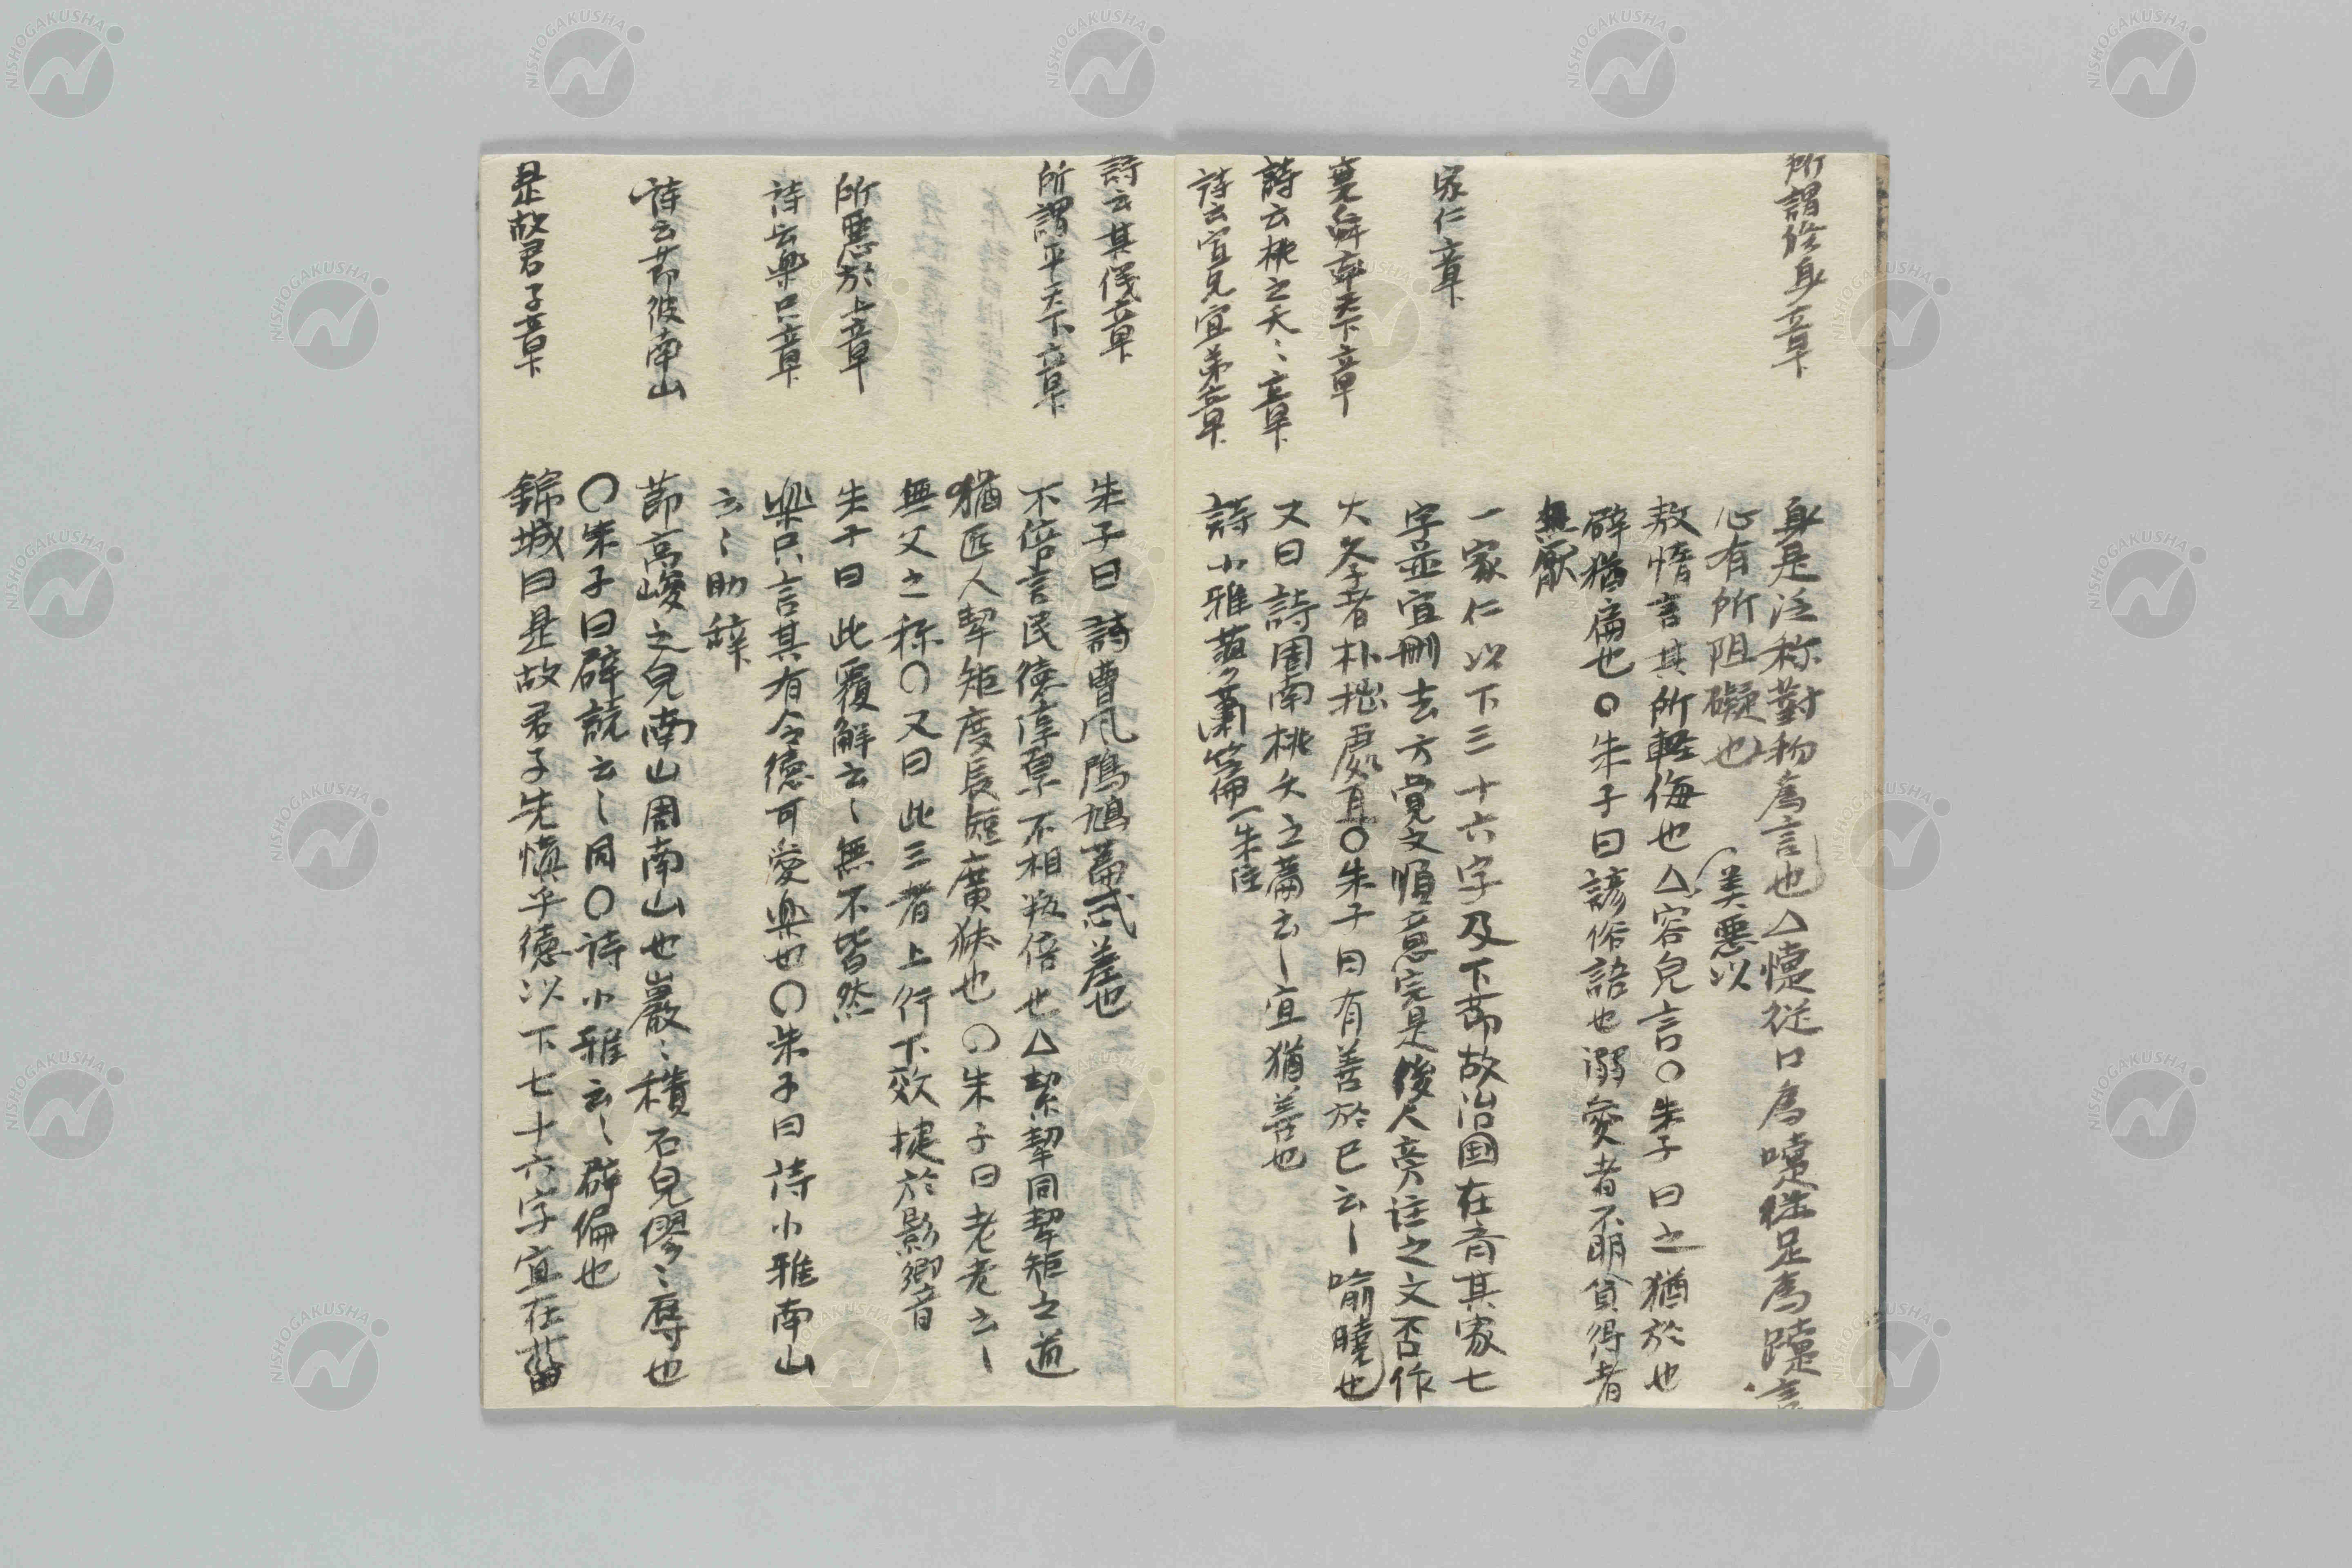 所謂修身章
身是泛称對物為言也△懥従口為嚔従足為躓言
心有所阻礙也
美悪以
敖惰言其所軽侮也△容皃言〇朱子曰之猶於也
辟猶偏也〇朱子曰諺俗語也溺愛者不明貪得者
無厭
家仁章
一家仁以下三十六字及下節故治国在斉其家七
字並宜刪去方覚文順意完是後人旁注之文否作
大学者朴拙處耳〇朱子曰有善於己云〻喻曉也
堯舜率天下章
詩云桃之夭〻章
又曰詩周南桃夭之篇云〻宜猶善也
詩云宜兄宜弟章
詩小雅蓼蕭篇 朱注
詩云其儀章
朱子曰詩曹风鳲鳩篇忒差也
所謂平天下章
不倍言民徳淳厚不相叛倍也△絜挈同挈矩之道
猶匠人挈矩度長短廣狹也〇朱子曰老老云〻
無父之称〇又曰此三者上行下效捷於影響
所悪於上章
朱子曰此覆解云〻無不皆然
詩云楽只章
楽只言其有令徳可愛楽也〇朱子曰詩小雅南山
云〻助辞
詩云節彼南山
節高峻之皃南山周南山也巖〻積石皃僇〻辱也
〇朱子曰辟説云〻同〇詩小雅云〻辟偏也
是故君子章
錦城曰是故君子先慎乎徳以下七十六字宜在菑